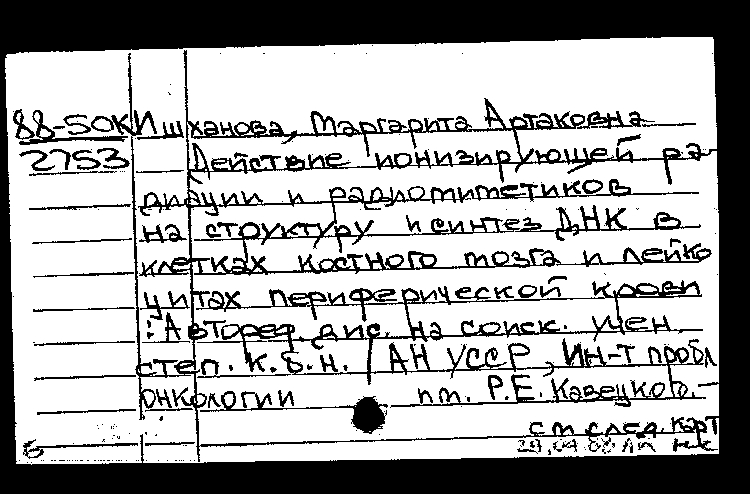 88-50К Ишханова, Маргарита Артаковна
2753 Действие ионизирующей ра-
диации и радиомиметиков
на структуру и синтез ДНК в
клетках костного мозга и лейко
цитах периферической крови
: Автореф. дис. на соиск. учен.
степ. к.б.н. / АН УССР, Ин-т пробл
онкологии им. Р.Е. Кавецкого. –
см след. карт
Б 28.04.88